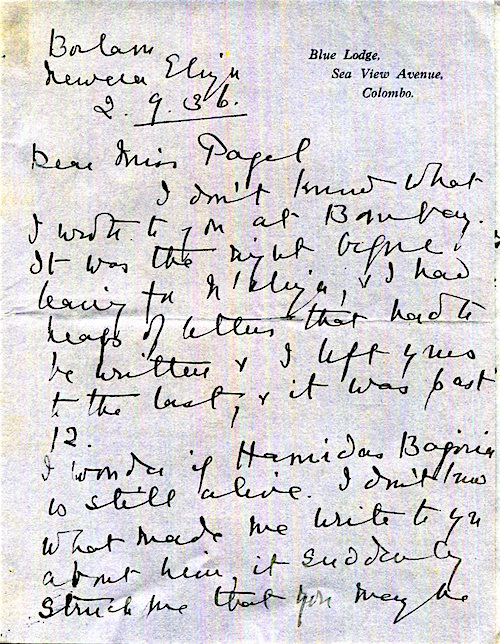 Blue Lodge,
Sea View Avenue,
Colombo.
Newera Eliya
2.9.36.
Dear Miss Pagel
I don't know what
I wrote to you at Bombay.
It was the night before
leaving for N'Eliya, & I had
heaps of letters that had to
be written & I left yours
to the last, & it was past
12.
I wonder if Haridas Bagoria
is still alive. I don't know
what made me write to you
about him, it suddenly
struck me that you may be